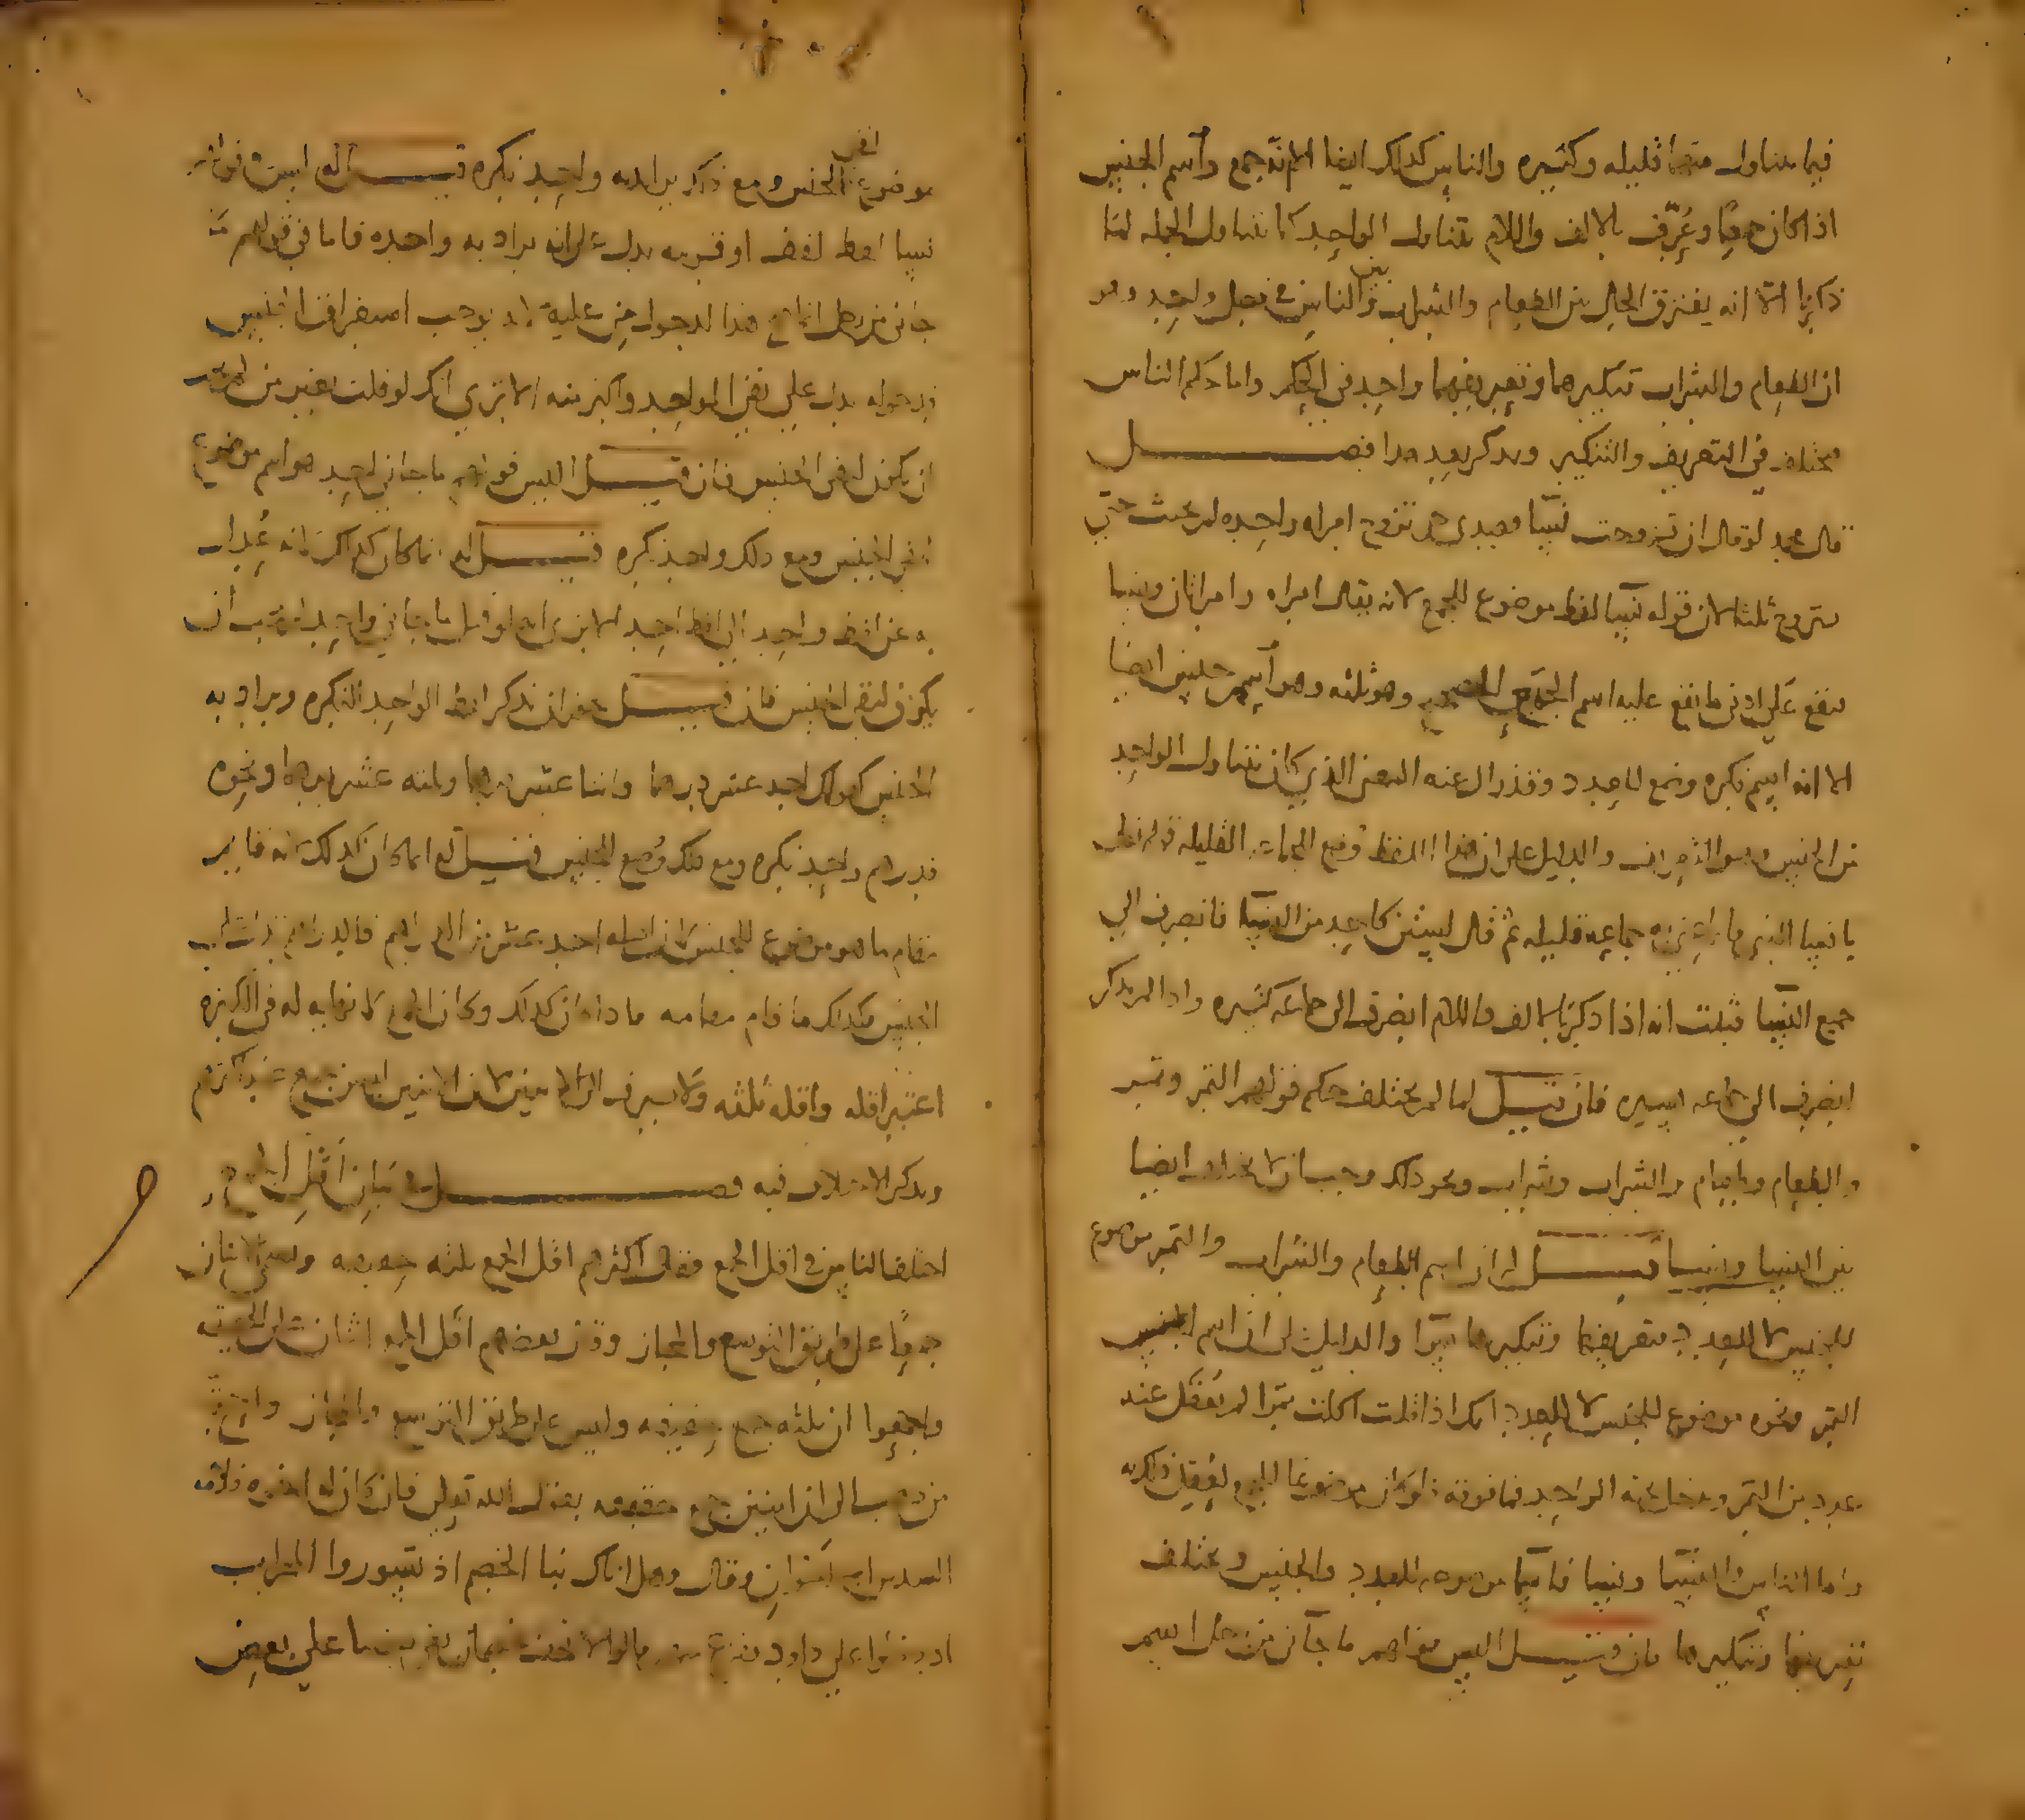 فيما يتناول منهما قليله وكثيره والناس كذلك ايضا الا انه جمع واسم الجنس
اذا كان جمعا وعُرِّف بالالف واللام تناول الواحد كما يتناول الجملة لما
ذكرنا الا انه يفترق الحال بين الطعام والشراب وبين الناس في فصل واحد وهو
ان الطعام والشراب تنكيرهما وتعريفهما واحد في الحكم واما حكم الناس
مختلف في التعريف والتنكير ويذكر بعد هذا فصل
قال محمد لو قال ان تزوجت نسآ فعبدي حر تزوج امراه واحده لم يحنث حتى
يتزوج ثلثا لان قوله نسآ لفظ موضوع للجمع لانه يقال امراه وامراتان ونسا
فيقع على ادنى ما يقع عليه اسم الجمع وهو ثلثه وهو اسم جنس ايضا
الا انه اسم نكره وجمع لا عدد وقد زال عنه المعنى الذي كان يتناول الواحد
من الجنس وهو التعريف والدليل على ان هذا اللفظ وضع للجماعه القليله قوله تعالى
يا نسا النبي جماعه قليله ثم قال لستن كاحد من النسآ فانصرف الى
جميع النسآ فثبت انه اذا ذكر بالالف واللام انصرف الى جماعه كثيره واذا لم يذكر
انصرف الى جماعه يسيره فان قيل لما لم يختلف حكم قولهم التمر وتمر
والطعام وطعام والشراب وشراب ونحو ذلك وجب ان لا يختلف ايضا
بين النسا ونسا قيل له ان اسم الطعام والشراب والتمر موضوع
للجنس لا للعدد فتعريفها وتنكيرها سوآ والدليل على ان اسم الجنس
التمر ونحوه موضوع للجنس لا للعدد انك اذا قلت اكلت تمرا لم يعقل عند
عدد من التمر ودخل تحته الواحد فما فوقه ولو كان موضوعا للجمع لعقل ذلك به
واما الناس والنسآ ونسا فانها موضوعه للعدد والجنس ويختلف
تعريفها وتنكيرها فان قيل اليس قولهم ما جآنى من رجل اسم
موضوع لنفى الجنس ومع ذلك يراد به واحد نكره قيل له ليس في قوله
نسا لفظ نفى او قرينه يدل على انه يراد به واحده فاما في قولهم ما
جانى من رجل انما صح هذا لدخول من عليه لانه يوجب استغراق الجنس
فدخوله يدل على نفى الواحد واكثر منه الا ترى انك لو قلت بغير من لم يجب
ان يكون لنفى الجنس فان قيل اليس قولهم ما جانى احد هو اسم موضوع
لنفى الجنس ومع ذلك واحد نكره قيل له انما كان كذلك لانه عُدل
به عن لفظ واحد الى لفظ احد الا ترى انه لو قيل ما جانى واحد لم يجب ان
يكون لنفى الجنس فان قيل يجوز ان يذكر لفظ الواحد النكره ويراد به
الجنس كقولك احد عشر درهما واثنا عشر درهما وثلثه عشر درهما ونحوه
فدرهم واحد نكره ومع ذلك وُضع للجنس قيل له انما كان كذلك لانه قايم
مقام ما هو موضوع للجنس لان اصله احد عشر من الدراهم فالدراهم يتناول
الجنس فكذلك ما قام مقامه فاذا كان كذلك وكان الجمع لا نهايه له في الكثره
اعتبر اقله واقله ثلثه ولا ينصرف الى الاثنين لان الاثنين ليس بجمع عند اكثرهم
ويذكر الاختلاف فيه فصل في بيان اقل الجمع
اختلف الناس في اقل الجمع فقال اكثرهم اقل الجمع ثلثه حقيقه ويسمى الاثنان
جمعًا على طريق التوسع والمجاز وقال بعضهم اقل الجمع اثنان على الحقيقه
واجمعوا ان ثلثه جمع حقيقه وليس على طريق التوسع والمجاز واحتج
من ذهب الى ان اثنين جمع حقيقه بقول الله تعالى فان كان له اخوه فلامه
السدس اي اخوان وقال وهل اتاك نبا الخصم اذ تسوروا المحراب
اذ دخلوا على داود ففزع منهم قالوا لا تخف خصمان بغى بعضنا على بعض